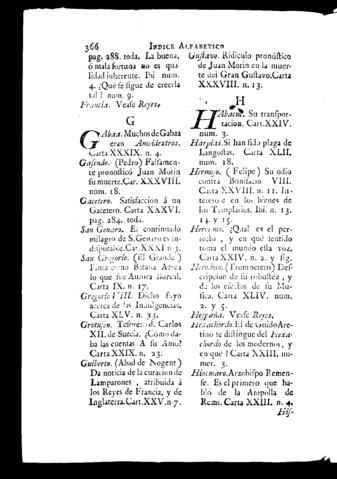 366 INDICE ALFABETICO
pag. 288. toda. La buena,
ò mala fortuna no es qua-
lidad inherente. Ibi num.
4. ¿Què se sigue de creerla
tal? num. 9.
Francia. Vease Reyes.
G
GAbaa. Muchos de Gabaa
eran Ambidextros.
Carta XXXIX. n. 4.
Gasendo. (Pedro) Falsamen-
te pronosticò Juan Morin
su muerte. Car. XXXVIII.
num. 18.
Gacetero. Satisfaccion à un
Gacetero. Carta XXXVI.
pag. 284. toda.
San Genaro. El continuado
milagro de S. Genaro es in-
disputable. Car. XXXI n. 3.
San Gregorio. (El Grande)
Pinta como Batalla Aerea
lo que fue Aurora Boreal.
Carta IX. n. 17.
Gregorio VIII. Dicho suyo
acerca de las Indulgencias.
Carta XLV. n. 33.
Grotusen. Tesorero de Carlos
XII. de Suecia. ¿Còmo da-
ba las cuentas à su Amo?
Carta XXIX. n. 23.
Guiberto. (Abad de Nogent)
Da noticia de la curacion de
Lamparones, atribuida à
los Reyes de Francia, y de
Inglaterra. Cart. XXV. n. 7.
Gustavo. Ridiculo pronòstico
de Juan Morin en la muer-
te del Gran Gustavo. Carta
XXXVIII. n. 13.
H
HAbacuc. Su transpor-
tacion. Cart. XXIV.
num. 3.
Harpias. Si han sido plaga de
Langostas. Carta XLII.
num. 18.
Hermoso. (Felipe) Su odio
contra Bonifacio VIII.
Carta XXVIII. n. 11. In-
teresose en los bienes de
los Templarios. Ibi. n. 13.
14. y 15.
¿Qual es el per-
fecto, y en què sentido
toma el mundo esta voz.
Carta XXIV. n. 2. y sig.
(Trompetero) Des-
cripcion de su robustèz, y
de los efectos de su Mu-
sica. Carta XLIV. num.
2. y 5.
Hespaña. Vease Reyes.
Hexachordo. El de Guido Are-
tino te distingue del Hexa-
chordo de los modernos, y
en què? Carta XXIII. nu-
mer. 3.
Hincmaro. Arzobispo Remen-
se. Es el primero que ha-
blò de la Ampolla de
Rems. Carta XXIII. n. 4.
His-